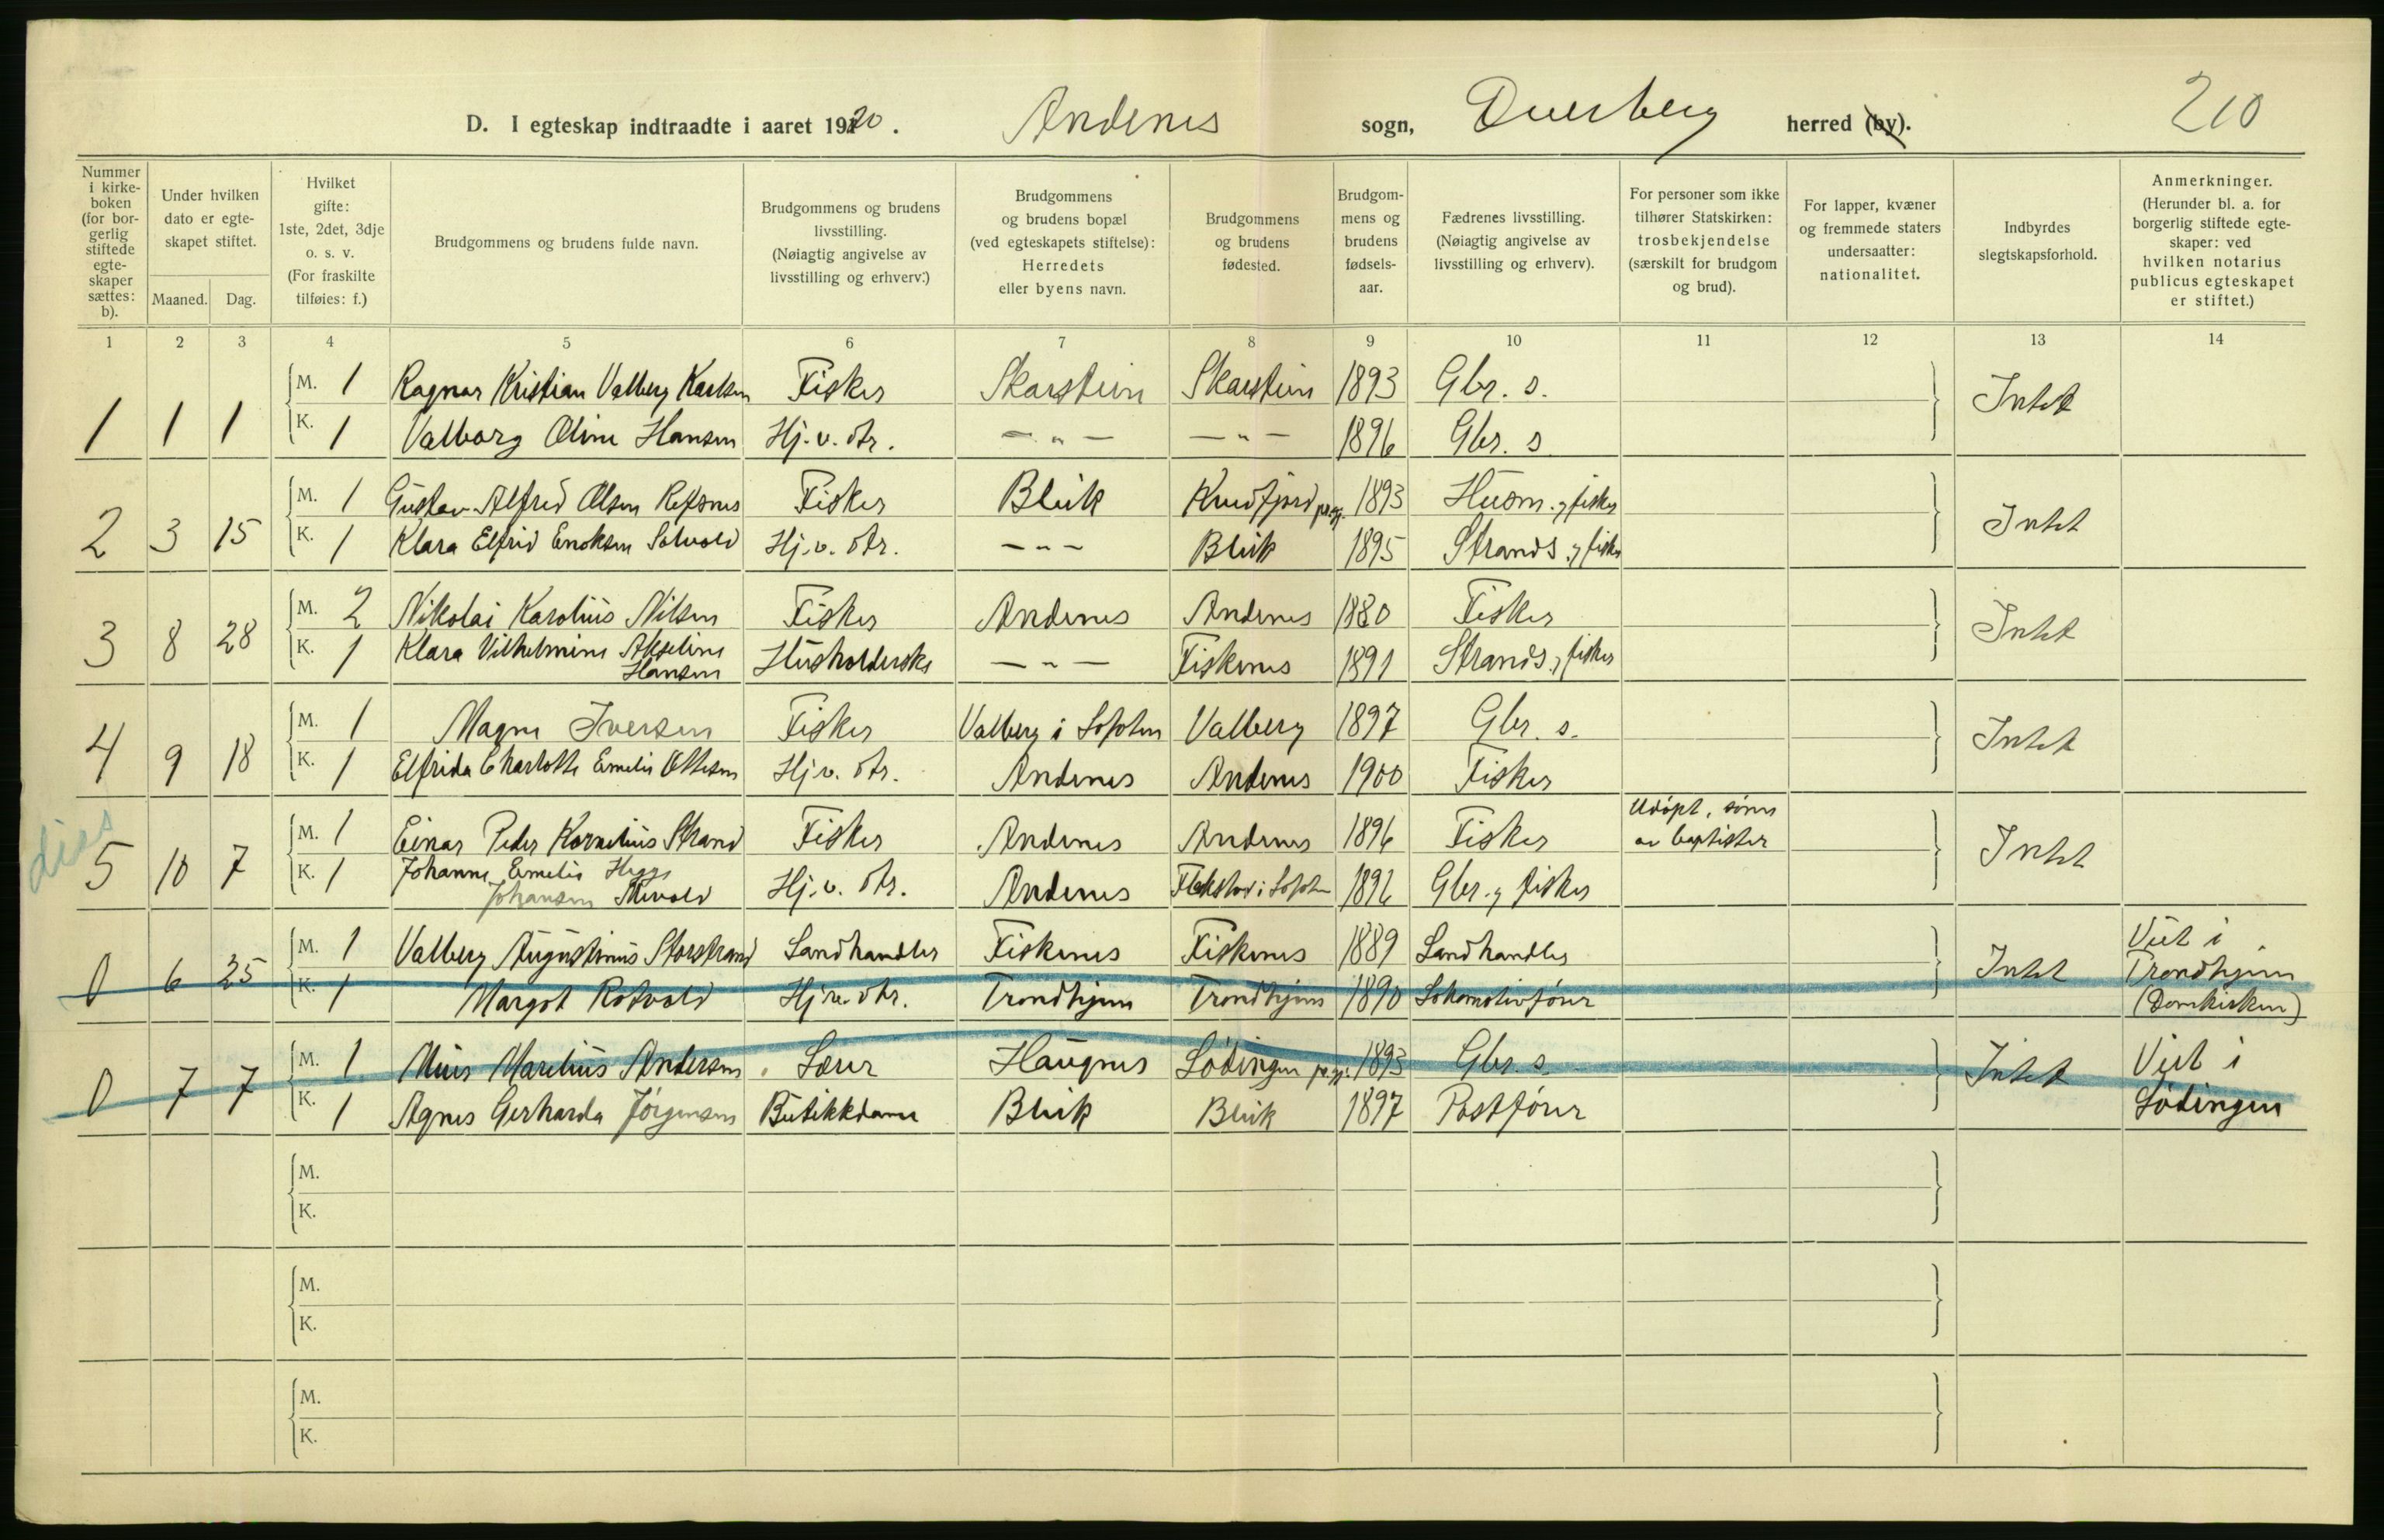 D. I egteskap indtraadte i aaret 1920. Andenes sogn, Dverberg herred (by). 210
Nummer i kirkeboken (for borgerlig stiftede egteskaper sættes: b).
Under hvilken dato er egteskapet stiftet.
Maaned. Dag.
Hvilket gifte: 1ste, 2det, 3dje o. s. v. (For fraskilte tilføies: f.)
Brudgommens og brudens fulde navn.
Brudgommens og brudens livsstilling. (Nøiagtig angivelse av livsstilling og erhverv.)
Brudgommens og brudens bopæl (ved egteskapets stiftelse): Herredets eller byens navn.
Brudgommens og brudens fødested.
Brudgommens og brudens fødselsaar.
Fædrenes livsstilling. (Nøiagtig angivelse av livsstilling og erhverv).
For personer som ikke tilhører Statskirken: trosbekjendelse (særskilt for brudgom og brud).
For lapper, kvæner og fremmede staters undersaatter: nationalitet.
Indbyrdes slegtskapsforhold.
Anmerkninger. (Herunder bl. a. for borgerlig stiftede egteskaper: ved hvilken notarius publicus egteskapet er stiftet.)
1 2 3 4 5 6 7 8 9 10 11 12 13 14
M. 1 Ragnar Kristian Valberg Karlsen Fisker Skarstein Skarstein 1893 Gbr. s.
1 1 1 Intet
K. 1 Valborg Oline Hansen Hj. v. dtr. - " - - " - 1896 Gbr. s
M. 1 Gustav Alfred Olsen Refsnes Fisker Bleik Kvædfjord prgj. 1893 Husm. og fisker
2 3 15 Intet
K. 1 Klara Elfrid Enoksen Solvold Hj. v. dtr. - " - Bleik 1895 Strands. og fisker
M. 2 Nikolai Karolius Nilsen Fisker Andenes Andenes 1880 Fisker
3 8 28 Intet
K. 1 Klara Vilhelmine Akseline Hansen Husholderske - " - Fiskenes 1891 Strands. og fisker
M. 1 Magne Iversen Fisker Valberg i Lofoten Valberg 1897 Gbr. s.
4 9 18 Intet
K. 1 Elfrida Charlotte Emelie Ottesen Hj. v. dtr. Andenes Andenes 1900 Fisker
diss
M. 1 Einar Peder Kornelius Strand Fisker Andenes Andenes 1896 Fisker Udöpt, sönn av baptister
5 10 7 Intet
K. 1 Johanne Emelie Johansen Hj. v. dtr. Andenes i Lofoten 1896 Gbr. og fisker
M. 1 Valberg Augustinus Storstrand Landhandler Fiskenes Fiskenes 1889 Landhandler
0 6 25 Intet Viet i Trondhjem (Domkirken)
K. 1 Margot Rotvold Hj. v. dtr. Trondhjem Trondhjem 1890 Lokomotivförer
M. 1 Marelius Andersen Lærer Haugnes Lödingen prgj. 1893 Gbr. s.
0 7 7 Intet Viet i Lödingen
K. 1 Agnes Gerharda Jörgensen Butikkdame Bleik Bleik 1897 Postförer
M.
K.
M.
K.
M.
K.